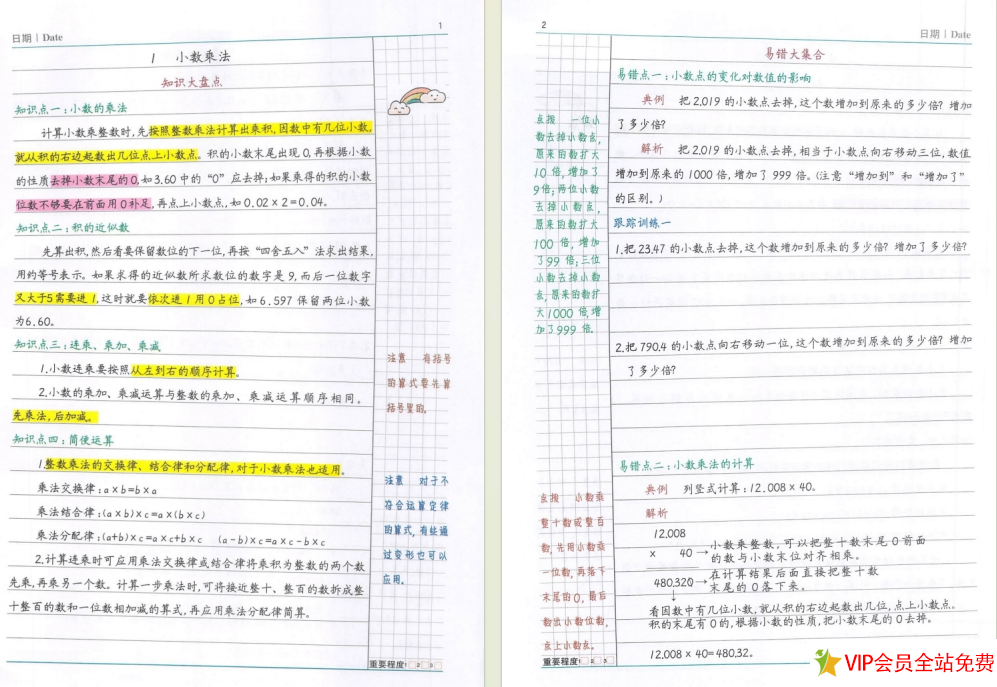 日期 | Date
1
1 小数乘法
知识大盘点
知识点一:小数的乘法
计算小数乘整数时,先按照整数乘法计算出乘积,因数中有几位小数,
就从积的右边起数出几位点上小数点。积的小数末尾出现0,再根据小数
的性质去掉小数末尾的0,如3.60中的“0”应去掉;如果乘得的积的小数
位数不够要在前面用0补足,再点上小数点,如0.02×2=0.04。
知识点二:积的近似数
先算出积,然后看要保留数位的下一位,再按“四舍五入”法求出结果,
用约等号表示。如果求得的近似数所求数位的数字是9,而后一位数字
又大于5需要进1,这时就要依次进1用0占位,如6.597保留两位小数
为6.60。
知识点三:连乘、乘加、乘减
1.小数连乘要按照从左到右的顺序计算。
2.小数的乘加、乘减运算与整数的乘加、乘减运算顺序相同。
先乘法,后加减。
知识点四:简便运算
1.整数乘法的交换律、结合律和分配律,对于小数乘法也适用。
乘法交换律:a×b=b×a
乘法结合律:(a×b)×c=a×(b×c)
乘法分配律:(a+b)×c=a×c+b×c (a-b)×c=a×c-b×c
2.计算连乘时可应用乘法交换律或结合律将乘积为整数的两个数
先乘,再乘另一个数。计算一步乘法时,可将接近整十、整百的数拆成整
十整百的数和一位数相加减的算式,再应用乘法分配律简算。
注意 有括号
的算式要先算
括号里的。
注意 对于不
符合运算定律
的算式,有些通
过变形也可以
应用。
重要程度 1 2 3
2
日期 | Date
易错大集合
易错点一:小数点的变化对数值的影响
典例 把2.019的小数点去掉,这个数增加到原来的多少倍?增加
了多少倍?
解析 把2.019的小数点去掉,相当于小数点向右移动三位,数值
增加到原来的1000倍,增加了999倍。(注意“增加到”和“增加了”
的区别。)
跟踪训练一
1.把23.47的小数点去掉,这个数增加到原来的多少倍?增加了多少倍?
2.把790.4的小数点向右移动一位,这个数增加到原来的多少倍?增加
了多少倍?
点拨 一位小
数去掉小数点,
原来的数扩大
10倍,增加了
9倍;两位小数
去掉小数点,
原来的数扩大
100倍,增加
了99倍;三位
小数去掉小数
点,原来的数扩
大1000倍,增
加了999倍。
易错点二:小数乘法的计算
典例 列竖式计算:12.008×40。
解析
12.008
× 40→小数乘整数,可以把整十数末尾0前面
的数与小数末位对齐相乘。
480.320→在计算结果后面直接把整十数
末尾的0落下来。
↓
看因数中有几位小数,就从积的右边起数出几位,点上小数点。
积的末尾有0的,根据小数的性质,把小数末尾的0去掉。
12.008×40=480.32。
点拨 小数乘
整十数或整百
数,先用小数乘
一位数,再落下
末尾的0,最后
数出小数位数,
点上小数点。
重要程度 1 2 3
VIP会员全站免费